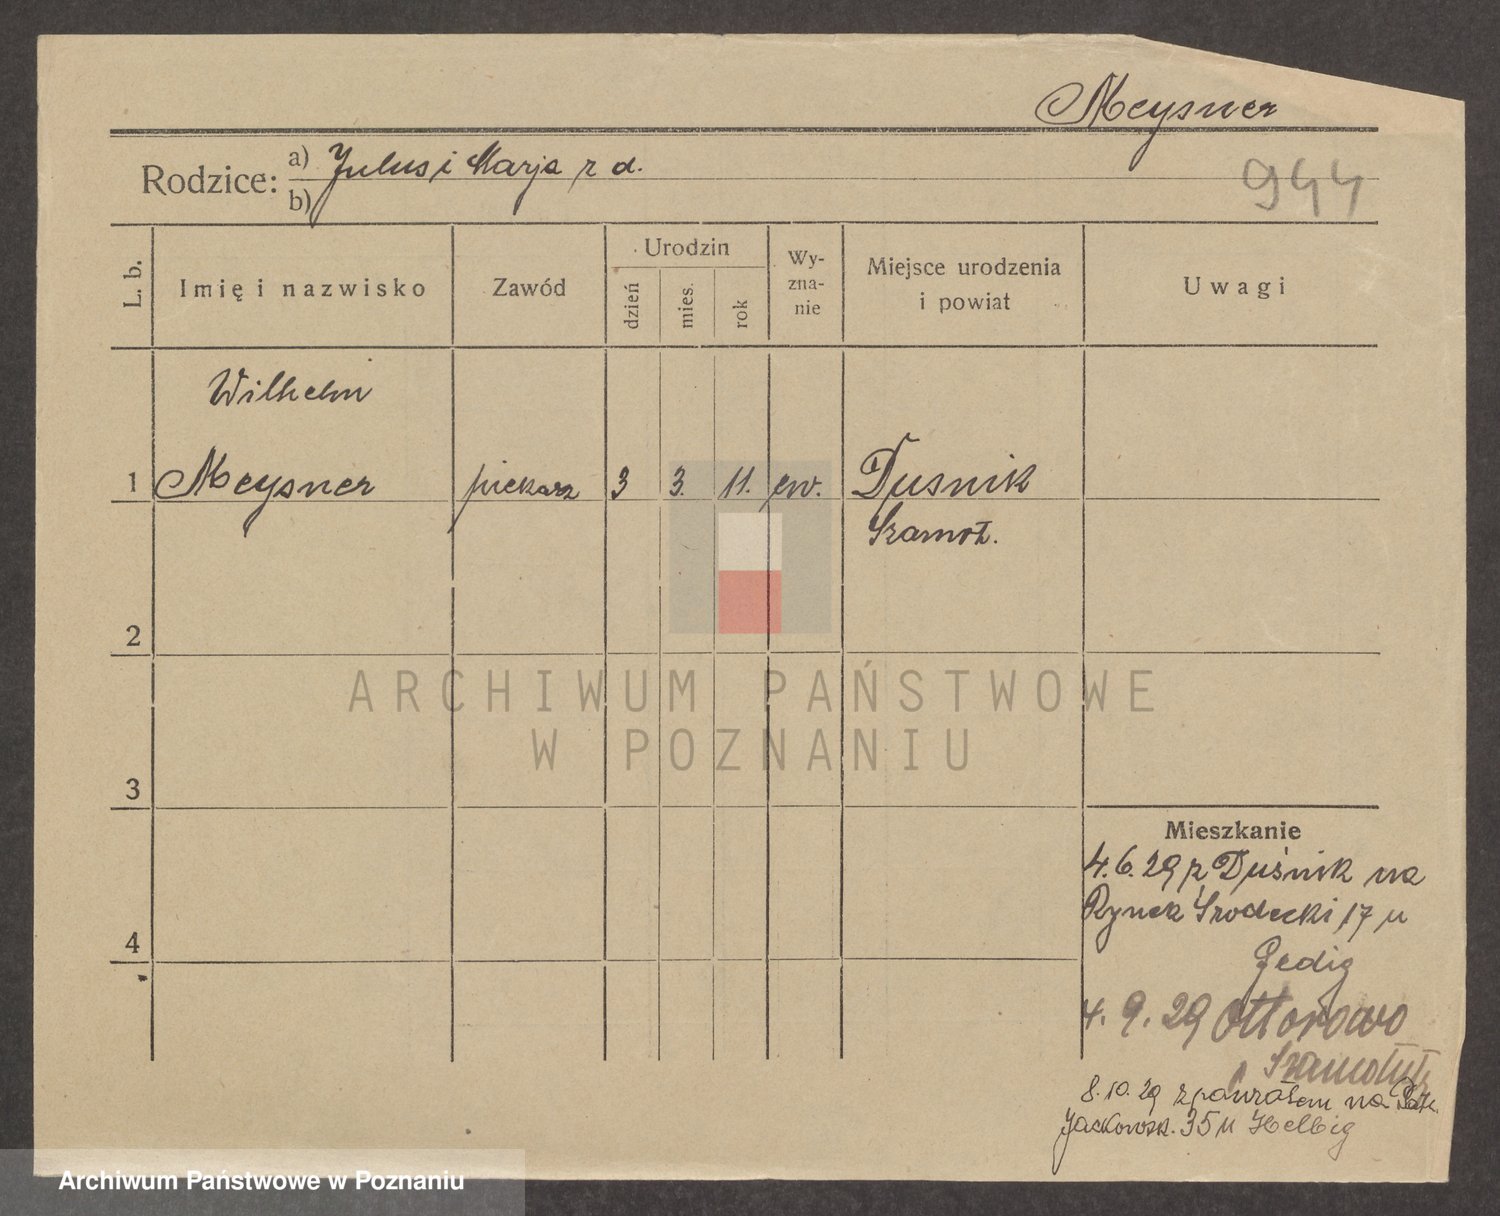 Meysner
Rodzice: a) Julus i Marja z d.
b)
944
L. b.
Imię i nazwisko
Zawód
Urodzin
dzień
mies.
rok
Wy-
zna-
nie
Miejsce urodzenia
i powiat
Uwagi
Wilhelm
1 Meysner piekarz 3 3. 11. ew. Dusnik
Szamot.
2
3
4
Mieszkanie
4.6.29 z Duśnik na
Rynek Środecki 17 u
4.9.29 Ottorowo
8.10.29 z powrotem na
Jackowsk. 35 u Helbig
ARCHIWUM PAŃSTWOWE
W POZNANIU
Archiwum Państwowe w Poznaniu